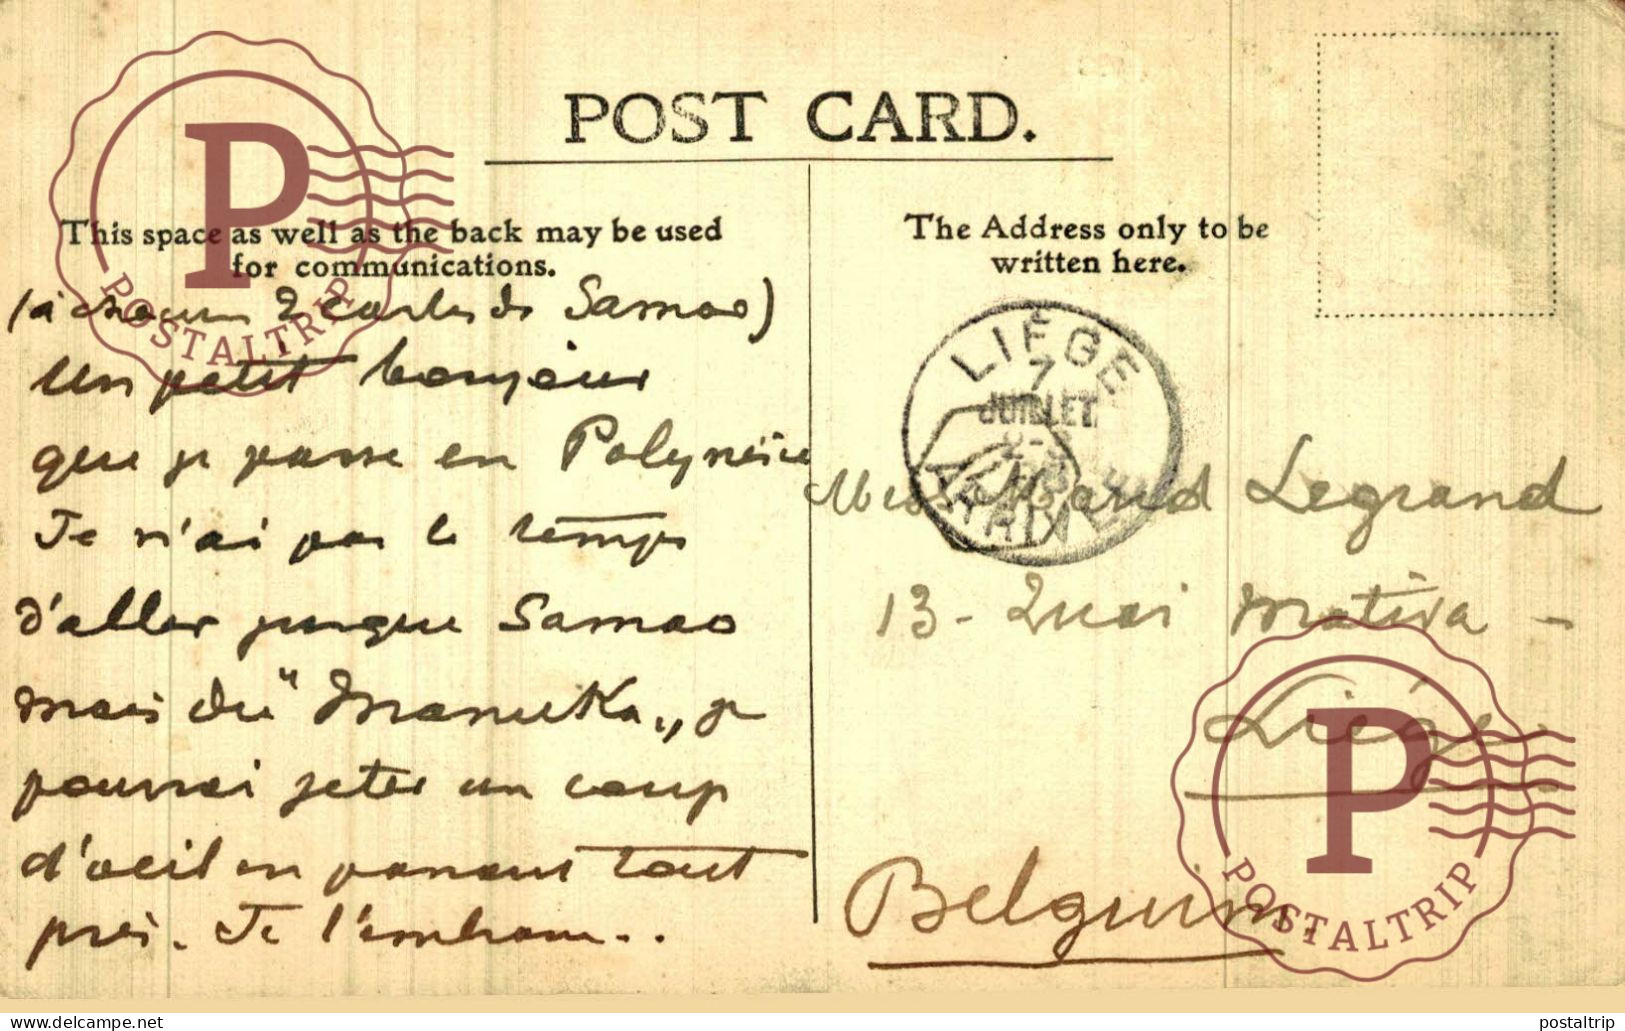 POST CARD.
This space as well as the back may be used
for communications.
(à chacun 2 cartes de Samoa)
Un petit bonjour
que je passe en Polynésie
Je n'ai pas le temps
d'aller jusque Samoa
mais du "Manuka" je
pourrai jeter un coup
d'oeil en passant tout
près. Je t'embrasse..
The Address only to be
written here.
LIÉGE
7
JUILLET
ARRIX
Legrand
13 - Quai Mativa -
Liége
Belgium.
P
POSTALTRIP
P
POSTALTRIP
www.delcampe.net
postaltrip